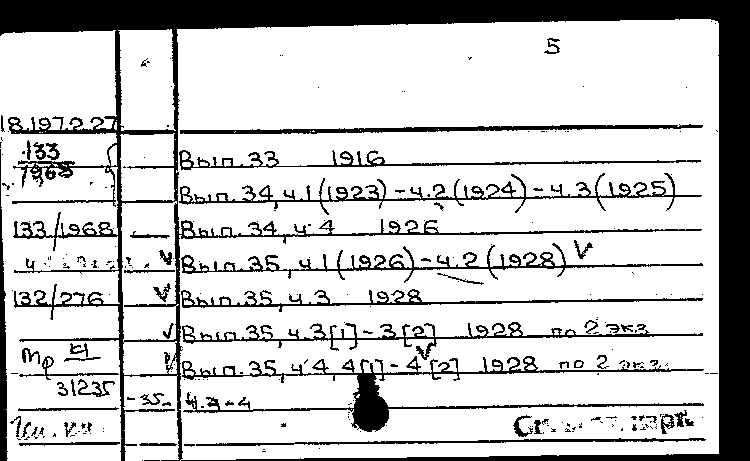 5
18.197.2.27
133
1968
Вып.33 1916
Вып.34,ч.1(1923)-ч.2(1924)-ч.3(1925)
133/1968 Вып.34,ч.4 1926
V Вып.35,ч.1(1926)-ч.2(1928) V
132/276 V Вып.35,ч.3 1928
V Вып.35,ч.3[1]-3[2] 1928 по 2 экз.
V Вып.35,ч.4,4[1]-4[2] 1928 по 2 экз.
31235
-35- ч.3-4